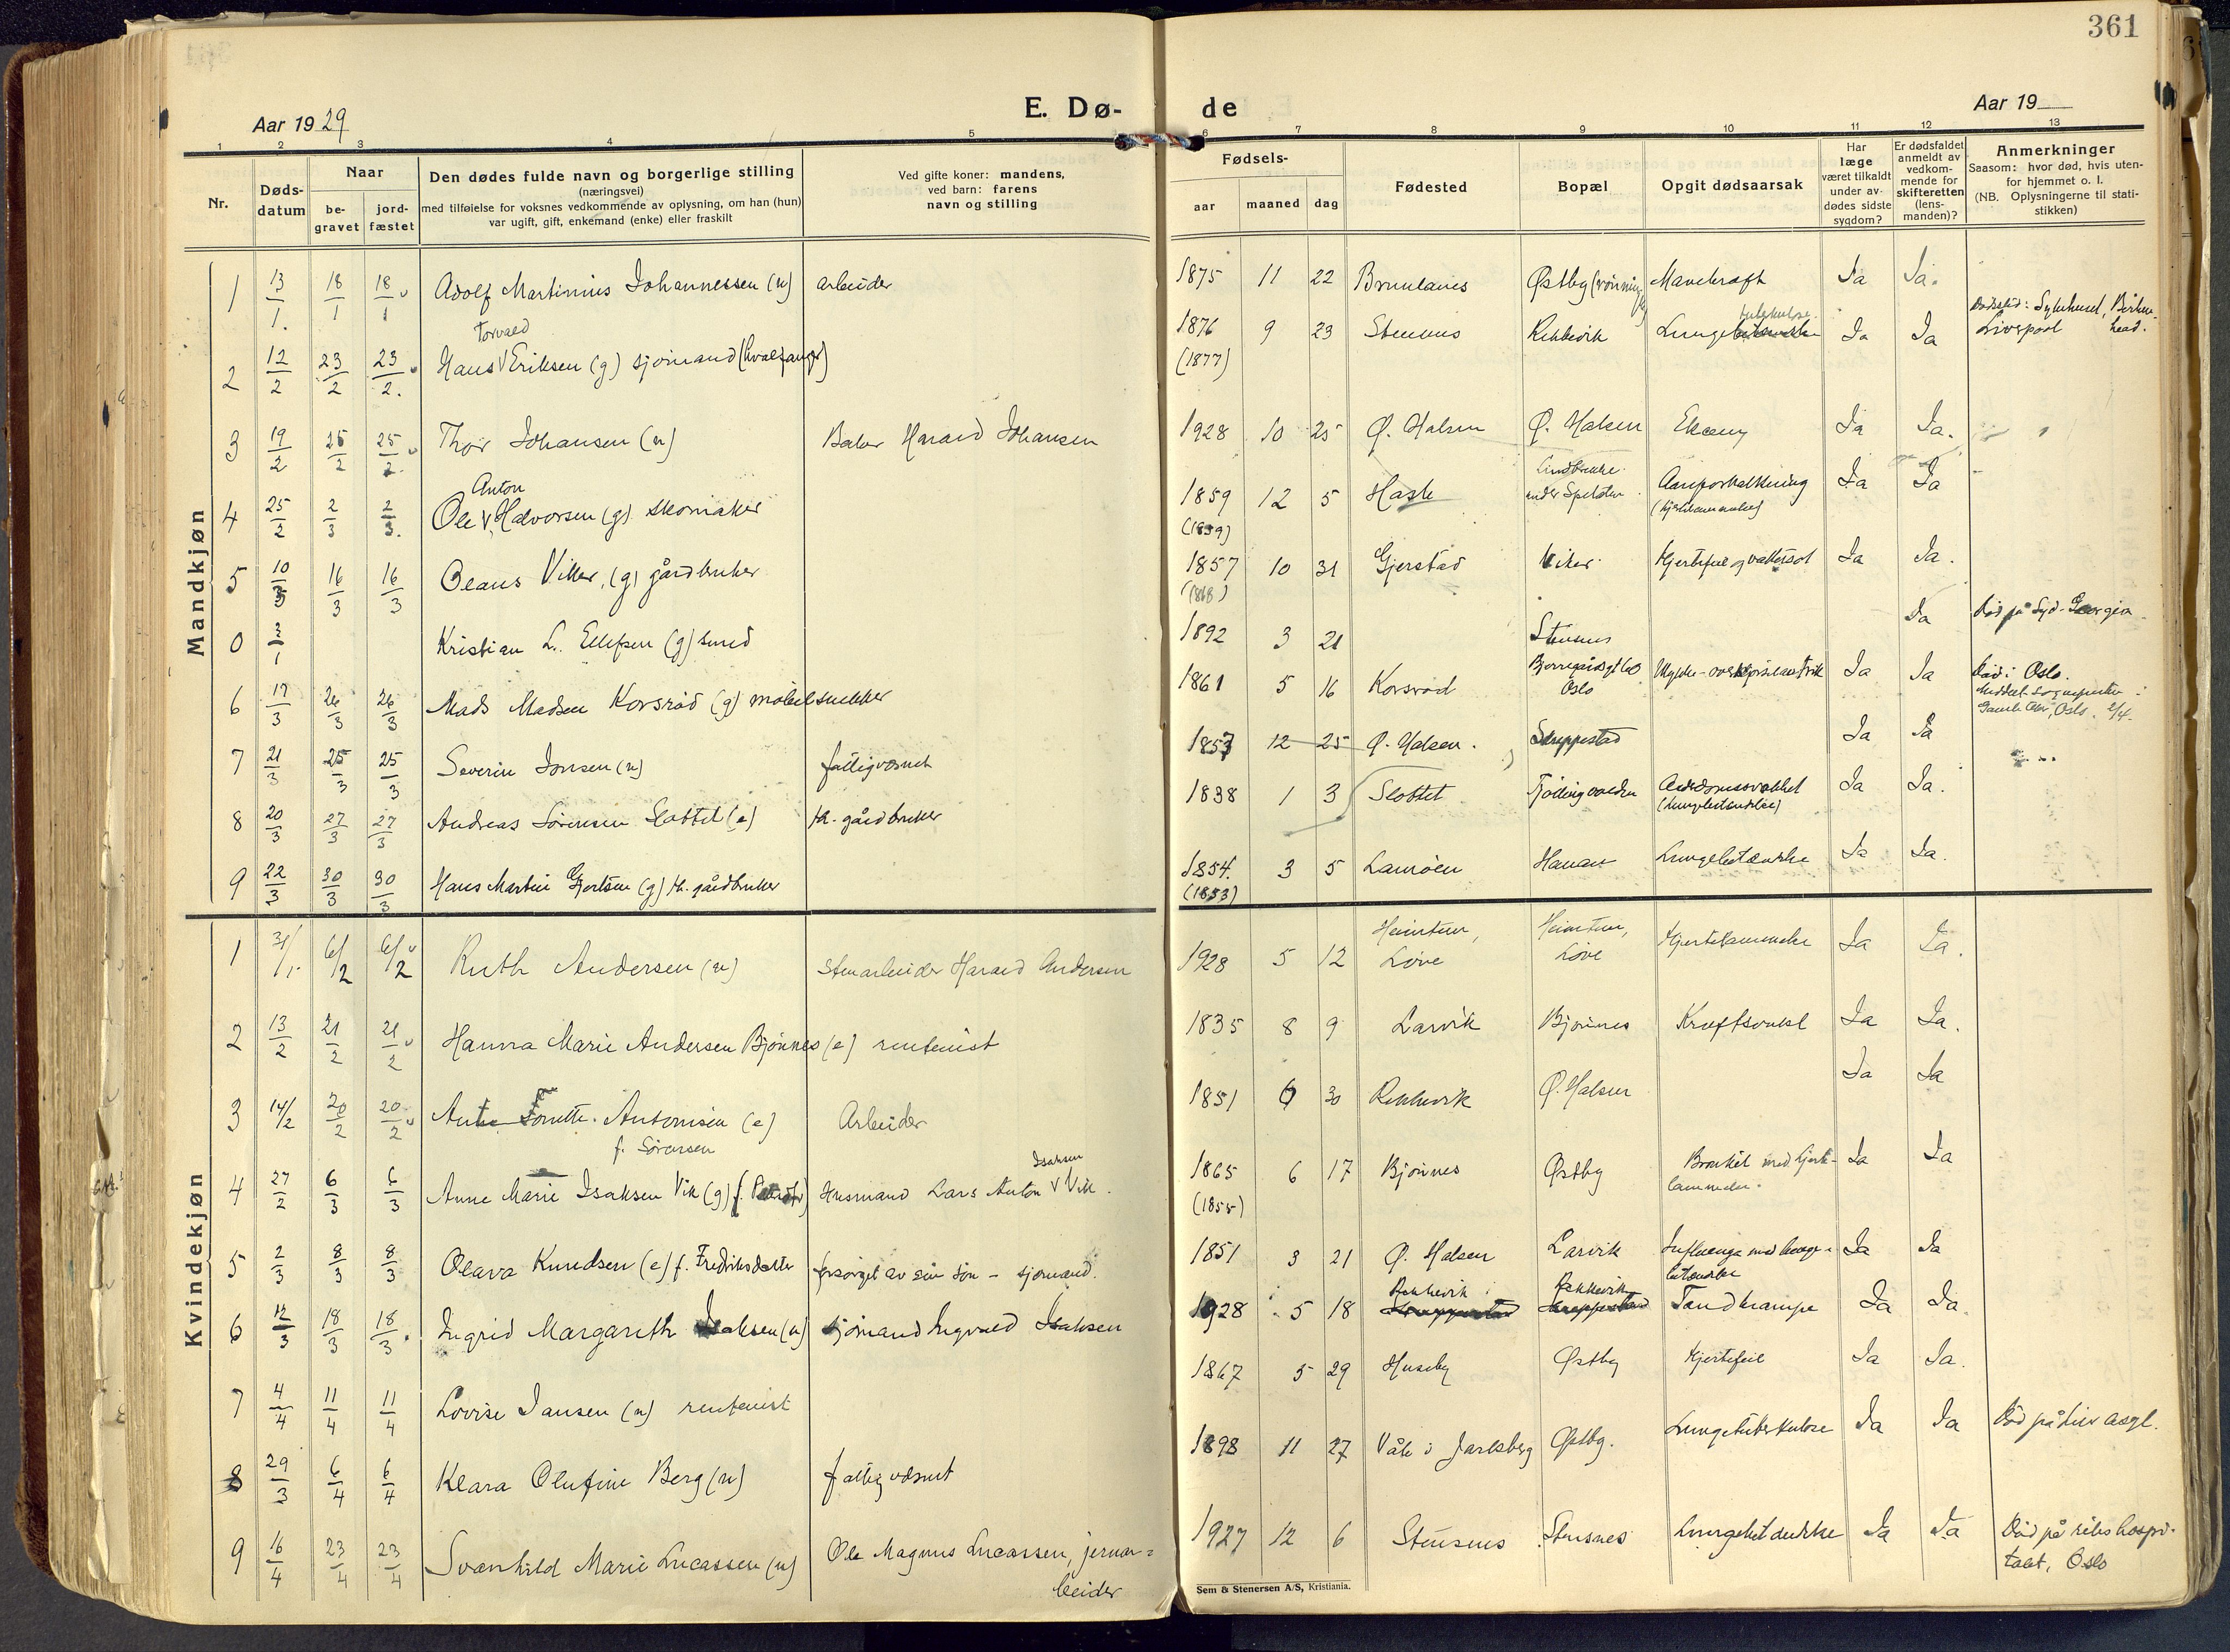 361
E. Dø-
de
Aar 1929
Aar 19
1 2 3 4 5
6 7 8 9 10 11 12 13
Nr.
Døds-
datum
Naar
be-
gravet
jord-
fæstet
Den dødes fulde navn og borgerlige stilling
(næringsvei)
med tilføielse for voksnes vedkommende av oplysning, om han (hun)
var ugift, gift, enkemand (enke) eller fraskilt
Ved gifte koner: mandens,
ved barn: farens
navn og stilling
Fødsels-
aar maaned dag
Fødested
Bopæl
Opgit dødsaarsak
Har
læge
været tilkaldt
under av-
dødes sidste
sygdom?
Er dødsfaldet
anmeldt av
vedkom-
mende for
skifteretten
(lens-
manden)?
Anmerkninger
Saasom: hvor død, hvis uten-
for hjemmet o. l.
(NB. Oplysningerne til stati-
stikken)
Mandkjøn
1 13/1. 18/1 18/1 Adolf Martinius Johannessen (u) arbeider 1875 11 22 Brunlanes Østby Mavekræft Ja Ja.
Torvald
2 12/2 23/2 23/2. Hans V Eriksen (g) sjömand (hvalfanger) 1876 9 23 Stensnes Rekkevik Lungetuberkulose Ja Ja Dødssted: Sykehuset, Birken-
head. Liverpool
(1877)
3 19/2 25/2 25/2. Thor Johansen (u) Baker Harald Johansen 1928 10 25 Ø. Halsen Ø. Halsen Ekcem Ja Ja.
Anton
4 25/2 2/3 2/3. Ole V. Halvorsen (g) skomaker 1859 12 5 Hasle under Aareforkalkning Ja Ja
(1859)
5 10/3 16/3 16/3 Olaus Viker, (g) gårdbruker 1857 10 31 Gjerstad Viker Hjertefeil og vattersot Ja Ja.
0 3/1 Kristian L. Ellefsen (g) smed 1892 3 21 Stensnes Ja Død på Syd-Georgia
6 17/3 26/3 26/3 Mads Madsen Korsrød (g) møbelsnekker 1861 5 16 Korsrød Oslo Ja Ja Død i Oslo.
7 21/3 25/3 25/3 Severin Jonsen (u) fattigvæsnet 1857 12 25 Ø. Halsen. Skreppestad Ja Ja
8 20/3 27/3 27/3 Andreas Sörensen Slottet (e) fh. gårdbruker 1838 1 3 Slottet Alderdomssvakhet Ja Ja.
(lungebetændelse)
9 22/3 30/3 30/3 Hans Martin Gjertsen (g) fh. gårdbruker 1854. 3 5 Lamöen Hanan Lungebetændelse Ja Ja.
(1853)
Kvindekjøn
1 31/1. 6/2 6/2 Ruth Andersen (u) Stenarbeider Harald Andersen 1928 5 12 Heimtun, Löve Heimtun, Löve Hjertelammelse Ja Ja.
2 13/2 21/2 21/2 Hanna Marie Andersen Bjönnes (e) rentenist 1835 8 9 Larvik Bjönnes Kræftsvulst Ja Ja.
3 14/2 20/2 20/2 Antonisen (e) Arbeider 1851 30 Rekkevik Ø. Halsen Ja Ja
f. Sörensen
Isaksen
4 27/2 6/3 6/3 Anne Marie Isaksen Vik (g) Husmand Lars Anton V Vik. 1865 6 17 Bjönnes Østby Bronkit med hjerte-
lammelse. Ja Ja
(1855)
5 2/3 8/3 8/3 Olava Knudsen (e) f. Fredriksdatter forsörget av sin sön - sjömand. 1851 3 21 Ø. Halsen Larvik Influenza med lunge-
betændelse Ja Ja
Rekkevik Rekkevik
6 12/3 18/3 18/3. Ingrid Margareth Isaksen (u) sjömand Ingvald Isaksen 1928 5 18 Skreppestad Skreppestad Tandkrampe Ja Ja.
7 4/4 11/4 11/4 Lovise Jansen (u) rentenist 1867 5 29 Huseby Østby Hjertefeil Ja Ja.
8 29/3 6/4 6/4 Klara Olufine Berg (u) fattigvæsnet 1898 11 27 Våle i Jarlsberg Østby. Lungetuberkulose Ja Ja Död på Lier asyl.
9 16/4 23/4 23/4 Svanhild Marie Lucassen (u) Ole Magnus Lucassen, jernar-
beider 1927 12 6 Stensnes Stensnes Lungebetændelse Ja Ja Död på rikshospi-
talet, Oslo
Sem & Stenersen A/S, Kristiania.